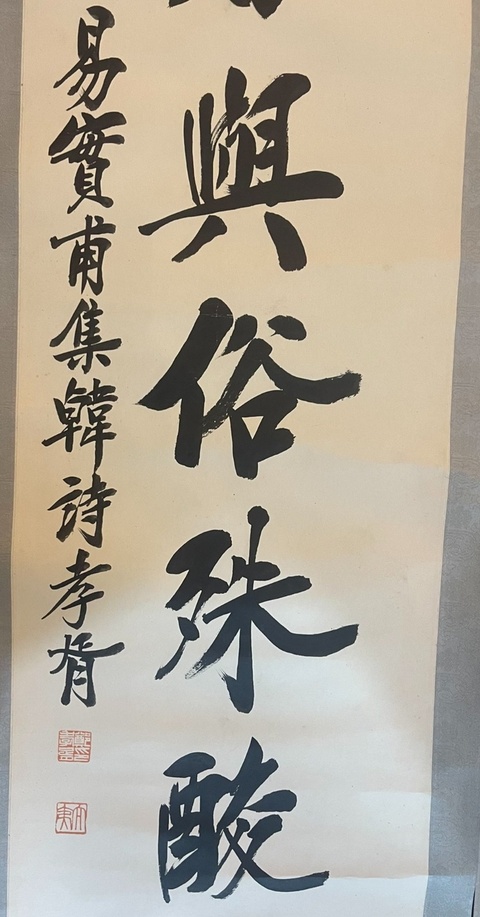 與俗殊酸
易實甫集韓詩孝胥